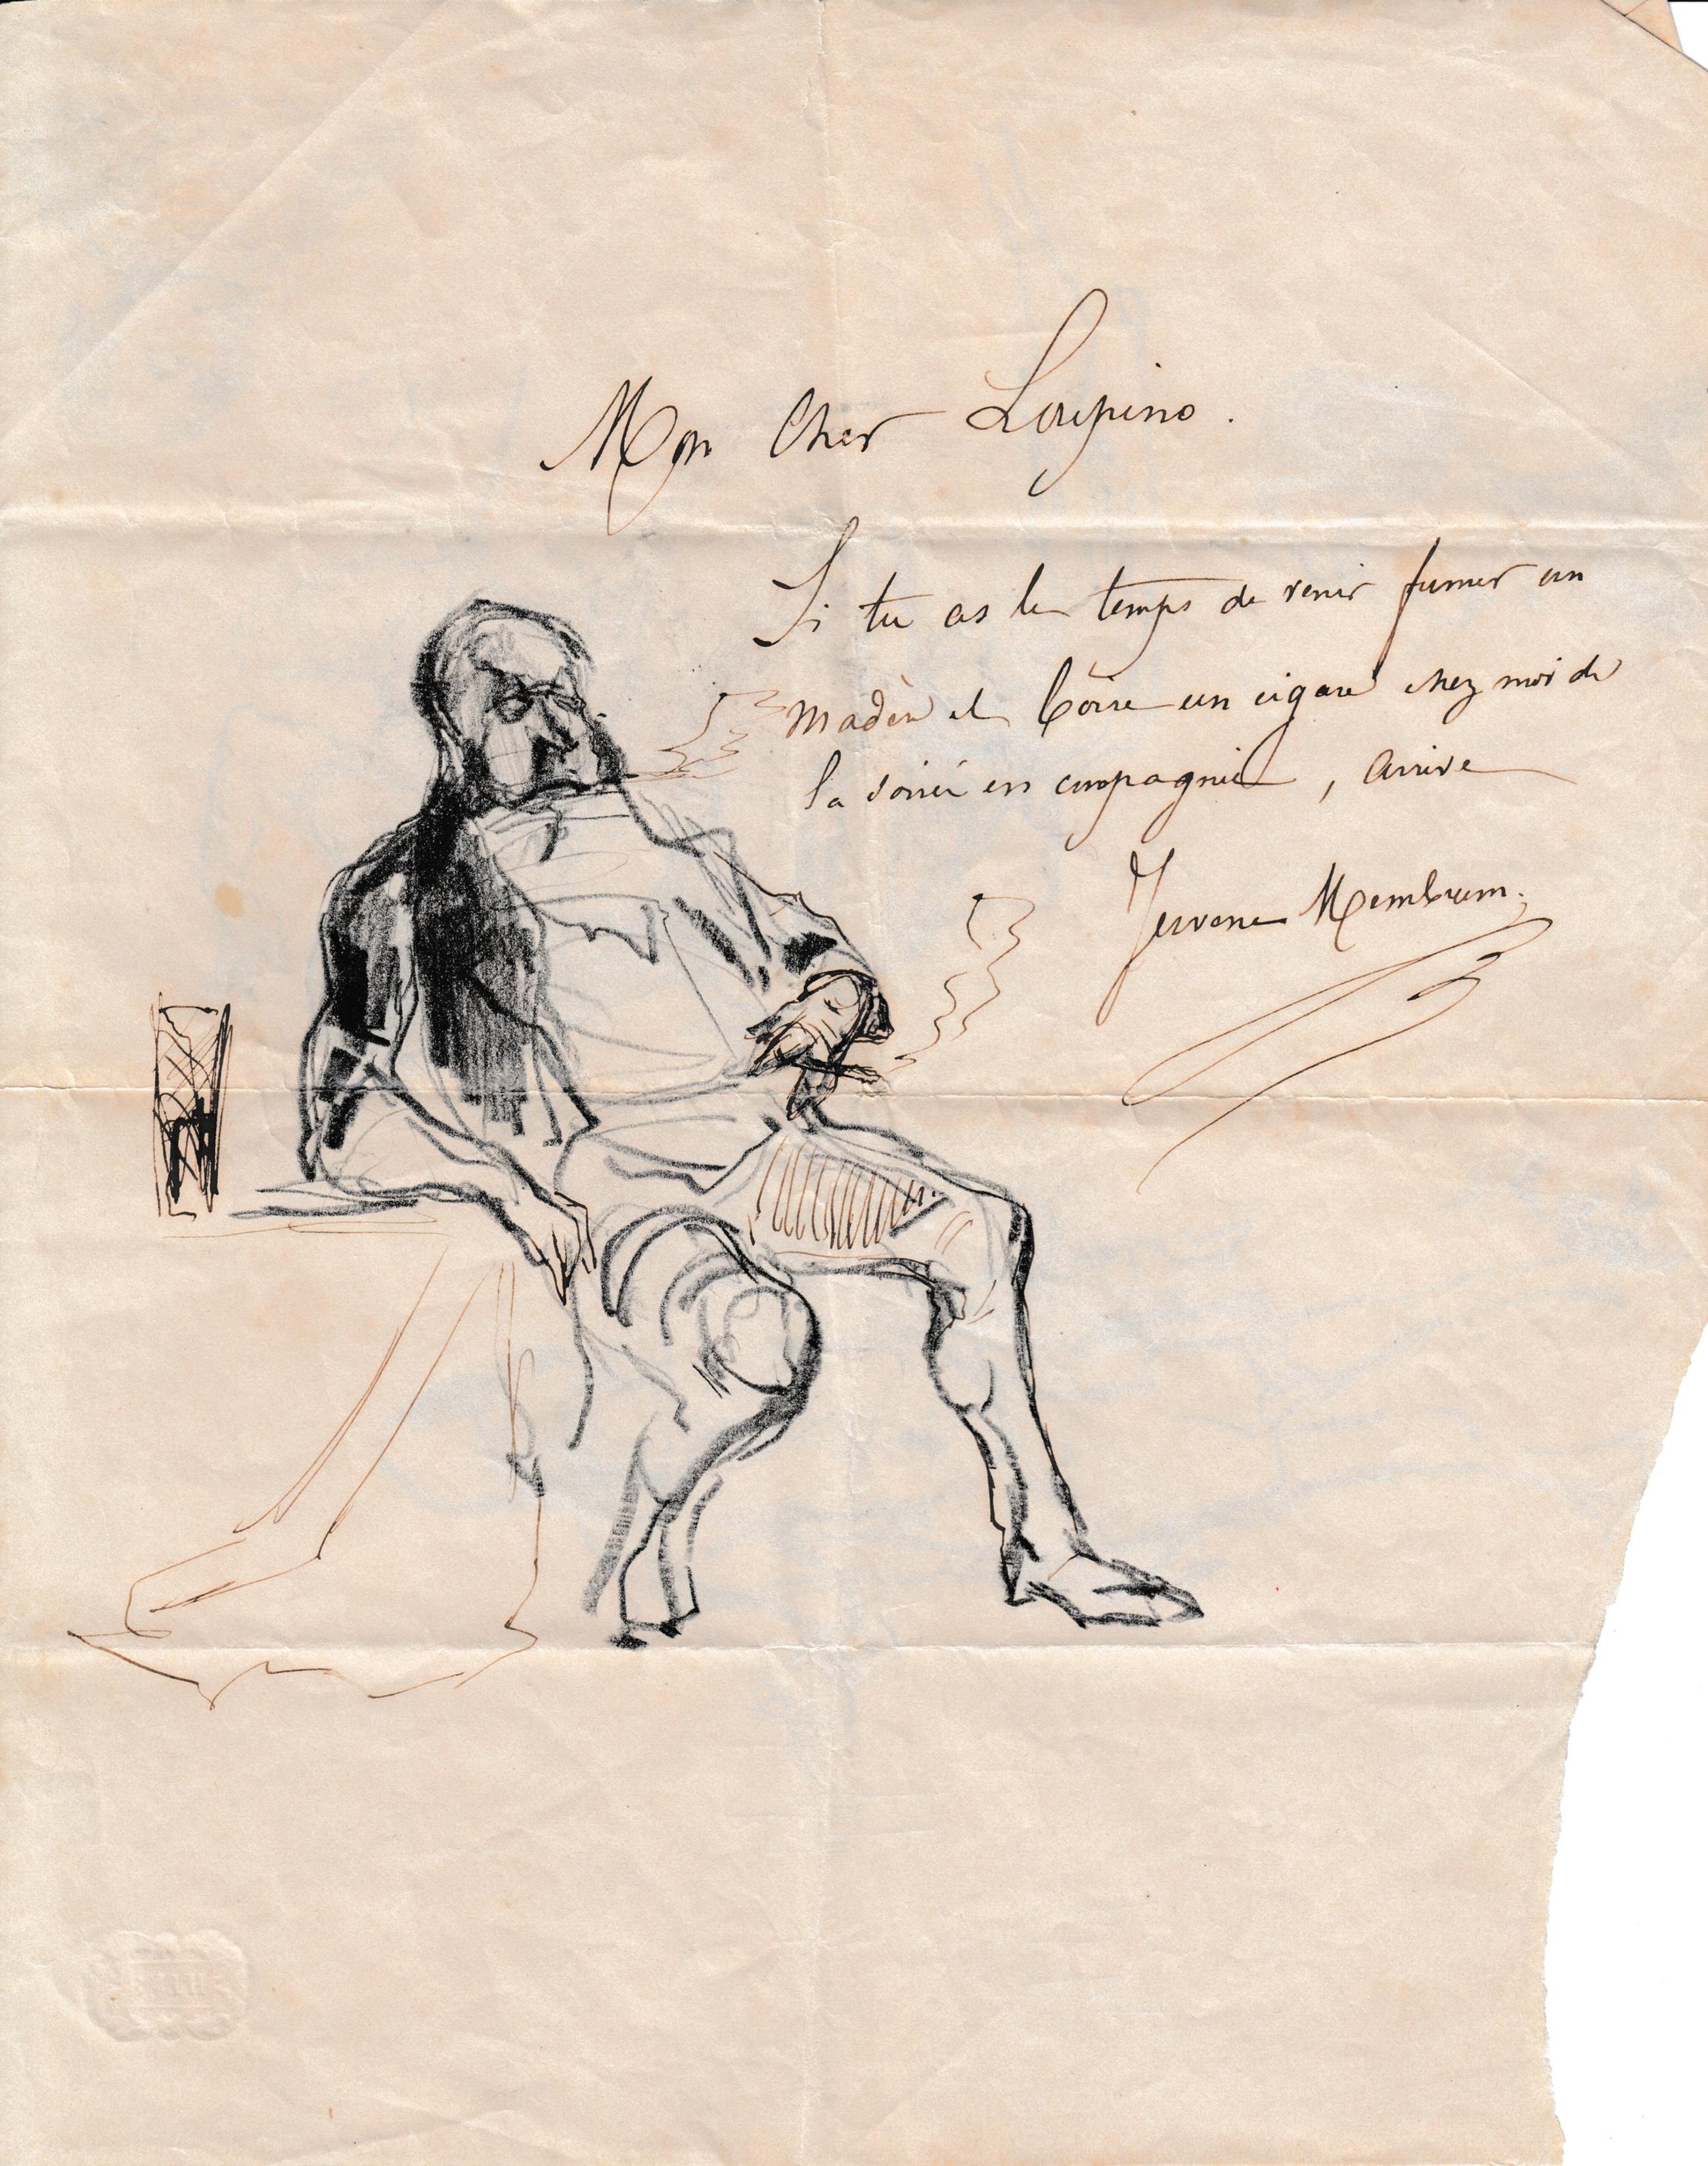 Mon Cher Loupino.
Si tu as le temps de venir fumer un
madèr et bôire un cigare chez moi de
la soirée en compagnie, arrive
Membrum.